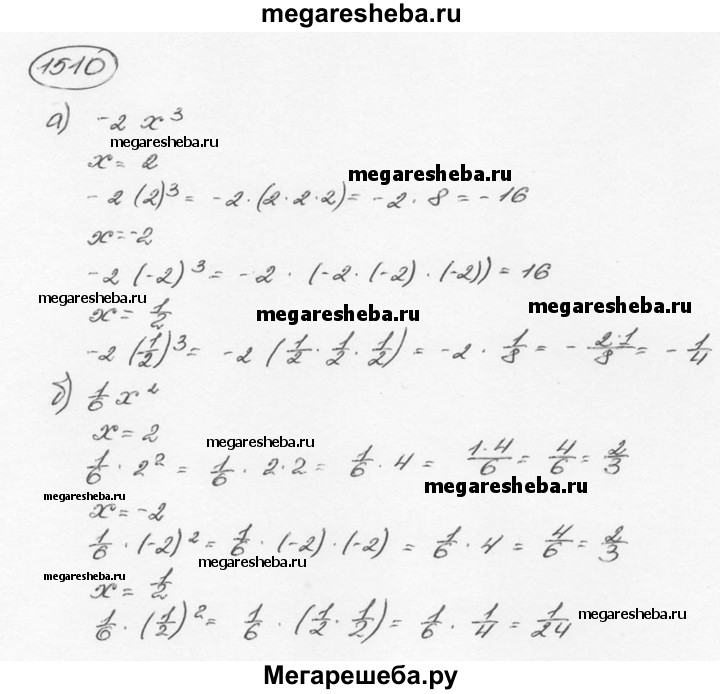 megaresheba.ru
1510
а) -2 x³
megaresheba.ru
x = 2
megaresheba.ru
-2 (2)³ = -2 · (2 · 2 · 2) = -2 · 8 = -16
x = -2
-2 (-2)³ = -2 · (-2 · (-2) · (-2)) = 16
megaresheba.ru
x = 1/2
megaresheba.ru
megaresheba.ru
-2 (1/2)³ = -2 (1/2 · 1/2 · 1/2) = -2 · 1/8 = - 2·1/8 = - 1/4
б) 1/6 x²
x = 2
megaresheba.ru
1/6 · 2² = 1/6 · 2 · 2 = 1/6 · 4 = 1·4/6 = 4/6 = 2/3
megaresheba.ru
megaresheba.ru
x = -2
1/6 · (-2)² = 1/6 · (-2) · (-2) = 1/6 · 4 = 4/6 = 2/3
megaresheba.ru
megaresheba.ru
x = 1/2
1/6 · (1/2)² = 1/6 · (1/2 · 1/2) = 1/6 · 1/4 = 1/24
Мегарешеба.ру